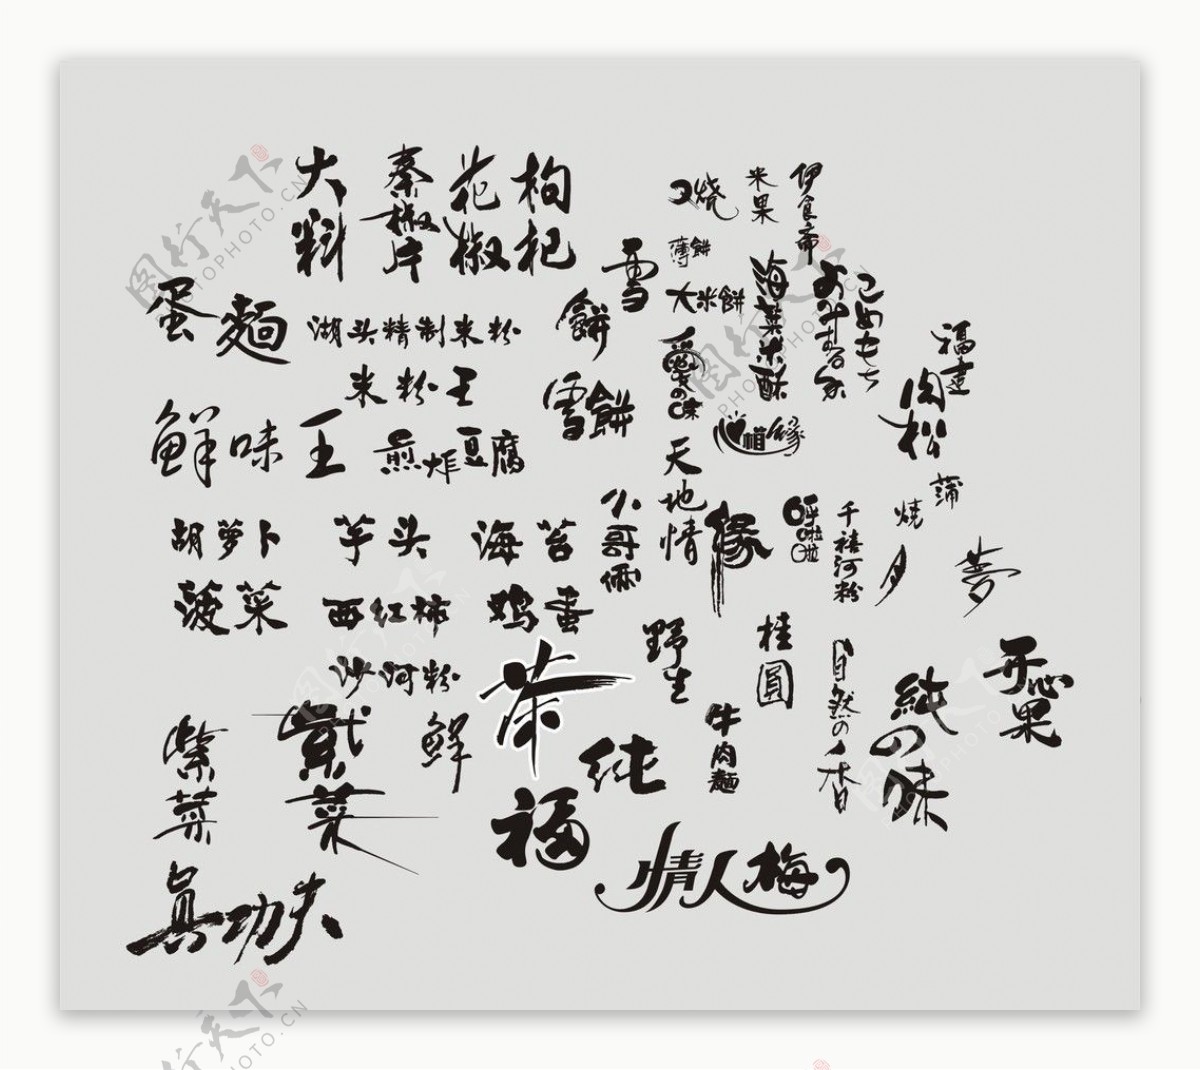 大料
秦椒片
花椒
枸杞
烧
米果
伊食斋
薄餅
雪
餅
大米餅
海菜米酥
おみずるか
こめもち
蛋麵
湖头精制米粉
米粉王
雪餅
愛の味
相缘
福建
肉松
鲜味王
煎炸豆腐
天地情
小哥俩
缘
呼啦啦
千禧河粉
烧
蒲
月
夢
胡萝卜
芋头
海苔
菠菜
西红柿
鸡蛋
沙河粉
野生
桂圓
自然の香
純の味
开心果
茶
紫菜
紫菜
鲜
纯
牛肉麵
福
情人梅
真功夫
图行天下
PHOTO.CN